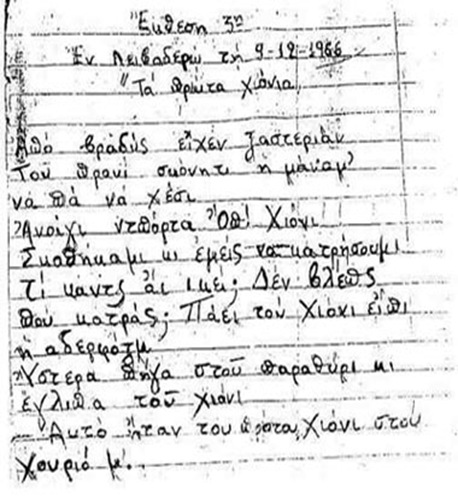 Έκθεση 3η
Ἐν Λειβαδερω τῇ 9-12-1966
"Τά πρώτα χιόνια
Ἀπό βραδύς εἶχεν ξαστεριάν
Τοῦ πρανί σκώνητι ἡ μάναμ'
νά πά νά χέσι
Ἀνοίχι ντπόρτα Ὀπ! Χιόνι
Σκωθήκαμι κι ἐμεῖς να κατρήσουμι
Τί καντς ἀι ικεί; Δέν βλέπς
που κατράς; Πάει τοῦ Χιόνι εἶπι
ἡ αδερφάτμ
Ὕστερα πῆγα στοῦ παραθύρι κι
ἔγλιπα τοῦ χιόνι
Αὐτό ἦταν του πρώτα Χιόνι στοῦ
Χουριό μ'.